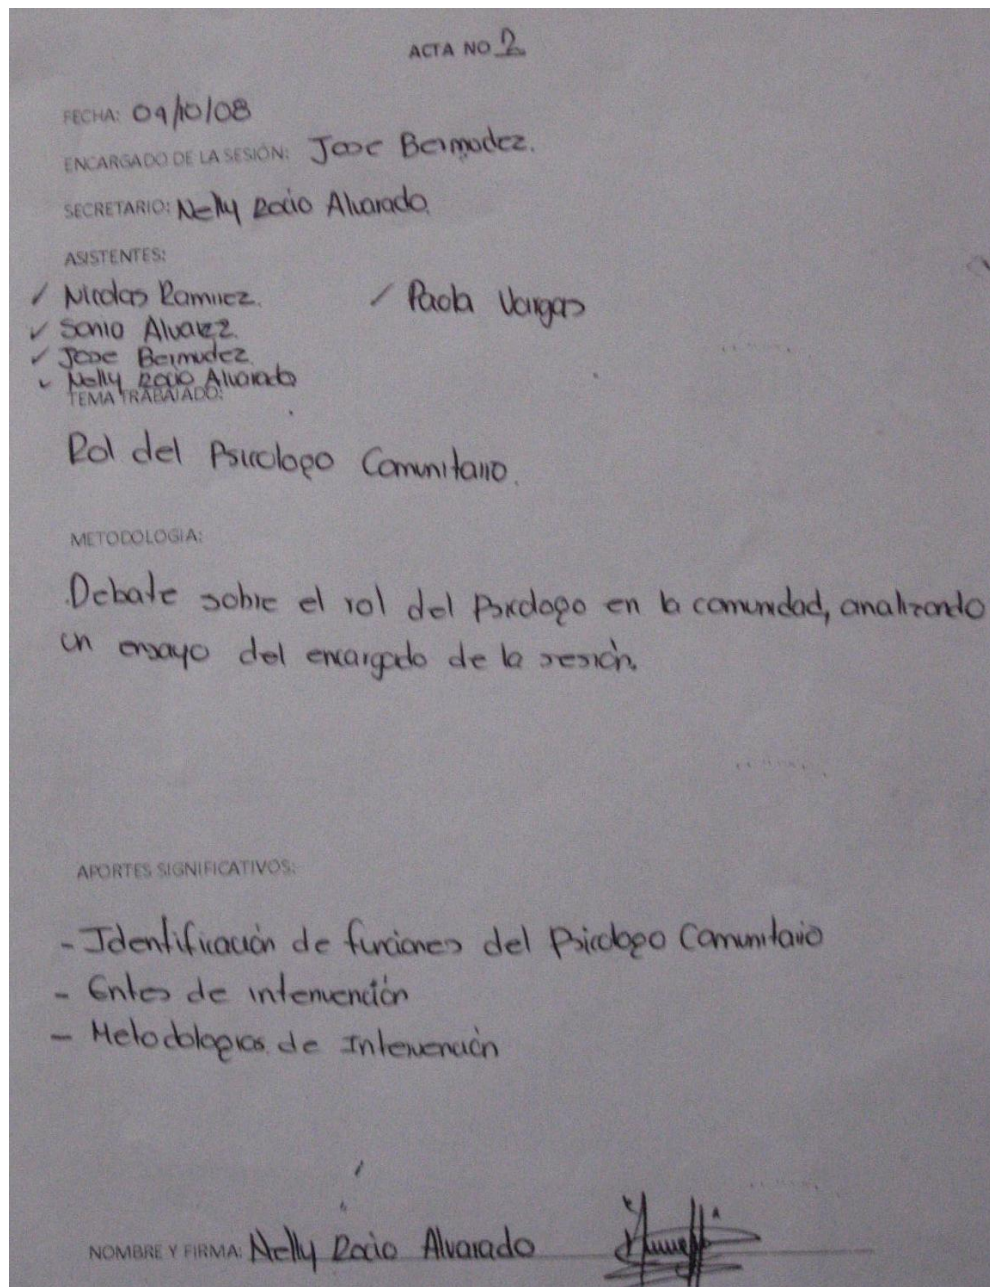 ACTA NO 2
FECHA: 09/10/08
ENCARGADO DE LA SESIÓN: Jose Bermudez.
SECRETARIO: Nelly Rocio Alvarado.
ASISTENTES:
✓ Nicolas Ramirez. ✓ Paola Vargas
✓ Sonia Alvarez.
✓ Jose Bermudez.
✓ Nelly Rocio Alvarado
TEMA TRABAJADO:
Rol del Psicologo Comunitario.
METODOLOGIA:
Debate sobre el rol del Psicologo en la comunidad, analizando
un ensayo del encargado de la sesión.
APORTES SIGNIFICATIVOS:
- Identificación de funciones del Psicologo Comunitario
- Entes de intervención
- Metodologias de Intervención
NOMBRE Y FIRMA: Nelly Rocio Alvarado